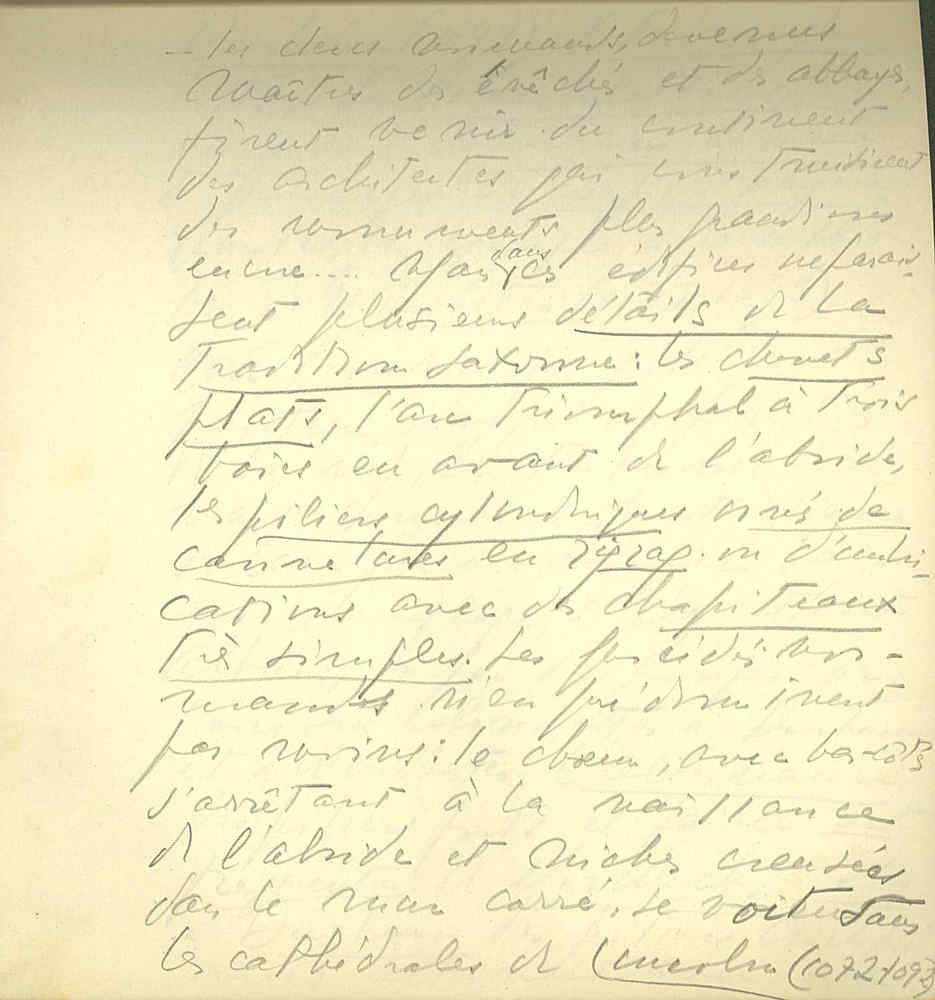 – les clercs normands, devenus
maîtres des évêchés et des abbayes,
firent venir du continent
des architectes qui construisirent
des monuments plus grandioses
encore.... Mais dans ces édifices reparais-
sent plusieurs détails de la
tradition saxonne : les chevets
plats, l'arc triomphal à trois
baies en avant de l'abside,
les piliers cylindriques ornés de
cannelures en zigzag ou d'imbri-
cations avec des chapiteaux
très simples. Les procédés nor-
mands n'en prédominent
pas moins : le chœur, avec bas-côtés
s'arrêtant à la naissance
de l'abside et niches creusées
dans le mur carré, se voit dans
les cathédrales de Lincoln (1072-1092)